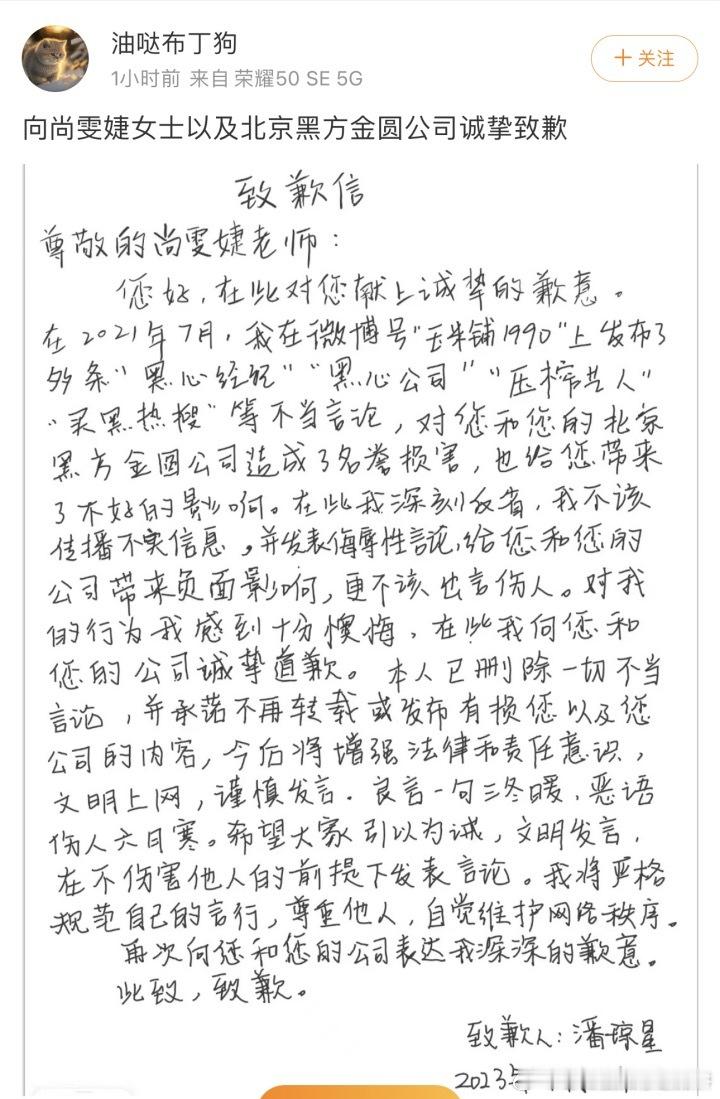 油哒布丁狗
1小时前 来自 荣耀50 SE 5G
+关注
向尚雯婕女士以及北京黑方金圆公司诚挚致歉
致歉信
尊敬的尚雯婕老师:
您好,在此对您献上诚挚的歉意。
在2021年7月,我在微博号"玉米铺1990"上发布了
多条"黑心经纪""黑心公司""压榨艺人"
"买黑热搜"等不当言论,对您和您的北京
黑方金圆公司造成了名誉损害,也给您带来
了不好的影响。在此我深刻反省,我不该
传播不实信息,并发表侮辱性言论,给您和您的
公司带来负面影响,更不该出言伤人。对我
的行为我感到十分懊悔,在此我向您和
您的公司诚挚道歉。本人已删除一切不当
言论,并承诺不再转载或发布有损您以及您
公司的内容,今后将增强法律和责任意识,
文明上网,谨慎发言.良言一句三冬暖,恶语
伤人六月寒。希望大家引以为诫,文明发言,
在不伤害他人的前提下发表言论。我将严格
规范自己的言行,尊重他人,自觉维护网络秩序。
再次向您和您的公司表达我深深的歉意。
此致,致歉。
致歉人:潘琼星
2023年